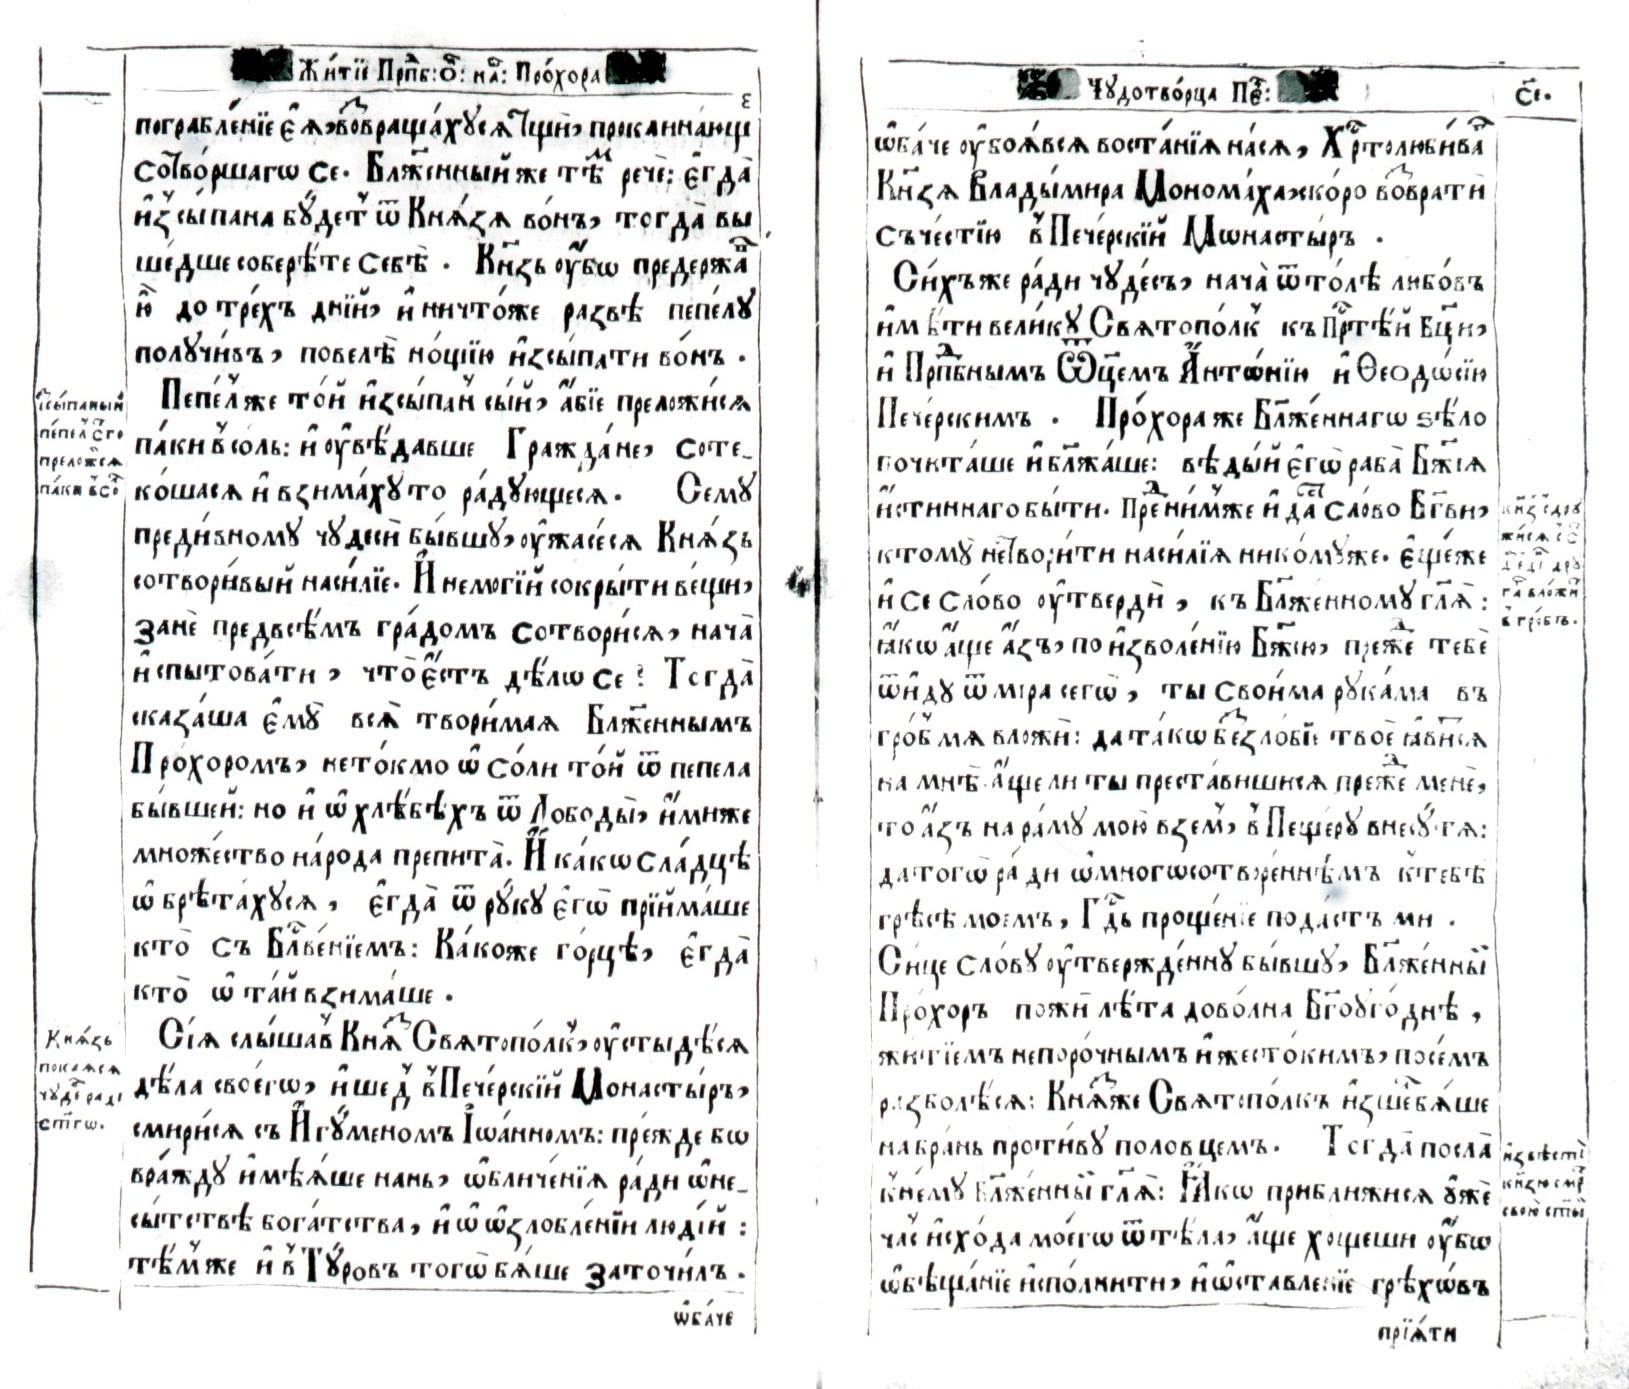 Жи́тїе Прпⷣб: Ѻ҃: на́: Про́хора
пограбле́нїе є҆ѧ̀, во́звраща́хꙋсѧ тщи̏, проклина́ющи
сотво́ршагѡ се. Бл҃же́нный же тѣ́мъ рече̏: є҆гда̏
и҆зсы́пана бꙋ́детъ ѿ Кнѧ́зѧ во́нъ, тогда̏ вы
ше́дше собере́те себѣ̏. Кн҃зь ᲂу҆́бѡ предержа́въ
ю҆̀ до тре́хъ дні́й, и҆ ничто́же развѣ̏ пе́пелꙋ
полꙋчи́въ, повелѣ̏ но́щїю и҆зсы́пати во́нъ.
Пе́пелъ же то́й и҆зсы́панъ сы́й, а҆́бїе преложи́сѧ
па́ки в̾ со́ль: и҆ ᲂу҆вѣ́давше Гражда́не, соте_
ко́шасѧ и҆ взима́хꙋ то ра́дꙋющесѧ. Семꙋ̏
преди́вномꙋ чꙋдеси̏ бы́вшꙋ, ᲂу҆жасе́сѧ Кнѧ́зь
сотвори́вый наси́лїе. И҆ немогі́й сокры́ти ве́щи,
зане̏ предвсѣ́мъ гра́домъ сотвори́сѧ, нача̏
и҆спытова́ти, что̏ є҆́сть дѣ́лѡ се? Тогда̏
сказа́ша є҆мꙋ̏ всѧ̏ твори́маѧ Бл҃же́ннымъ
Про́хоромъ, нето́кмо ѡ҆ со́ли то́й ѿ пепела
бы́вшей: но и҆ ѡ҆ хлѣ́бѣхъ ѿ Лободы̏, и҆́миже
мно́жество наро́да препита̏. И҆ ка́кѡ сла́дцѣ
ѡ҆брѣта́хꙋсѧ, є҆гда̏ ѿ рꙋ́кꙋ є҆гѡ̏ прїима́ше
кто̏ съ Блⷭ҇ве́нїемъ: Ка́коже го́рцѣ, є҆гда̏
кто̏ ѡ҆тай взима́ше.
Сїѧ̏ слы́шавъ Кнѧ́зь Свѧтопо́лкъ, ᲂу҆стыдѣ́сѧ
дѣ́ла своегѡ̀, и҆ ше́дъ в̾ Пече́рскїй Монасты́ръ,
смири́сѧ съ И҆гꙋ́меномъ І҆ѡа́нномъ: пре́жде бѡ
вра́ждꙋ и҆мѣѧ́ше нань, ѡ҆бличе́нїѧ ра́ди ѡ҆не_
сы́тствѣ бога́тства, и҆ ѡ҆ ѡ҆злобле́нїи люді́й:
тѣ́мже и҆ в̾ Тꙋ́ровъ того̏ бѧ́ше заточи́лъ.
ѡ҆ба́че
і҆зсы́паный
пе́пелъ ст҃го
преложи́сѧ
па́ки в̾ со́
Кнѧ́зь
покаѧ́сѧ
чꙋде́съ радї
ст҃гѡ.
Чꙋдотво́рца Пеⷱ҇:
с҃е.
ѡ҆ба́че ᲂу҆боѧ́всѧ воста́нїѧ на́сѧ, Хрⷭ҇толюби́ва
Кн҃зѧ Влады́мира Монома́ха, ско́ро во́зврати̏
съ че́стїю в̾ Пече́рскїй Мѡнасты́ръ.
Си́хъ же ра́ди чꙋде́съ, нача̏ ѿто́лѣ любо́въ
и҆мѣ́ти вели́кꙋ Свѧтопо́лкъ къ Прⷭ҇тѣ́й Бц҃и,
и҆ Прпⷣбнымъ Ѻц҃е́мъ А҆нтѡ́нїю и҆ Ѳеодѡ́сїю
Пече́рскимъ. Про́хора же Бл҃же́ннагѡ ѕѣ́ло
почита́ше и҆ бл҃жа́ше: вѣ́дый є҆гѡ̏ раба̏ Бж҃їѧ
и҆́стиннаго бы́ти. Пред̾ ни́мже и҆ даде́ сло́во Бг҃ви,
ктомꙋ̏ не сътвори́ти наси́лїѧ нико́мꙋже. Є҆ще́ же
и҆ се сло́во ᲂу҆тверди̏, къ Бл҃же́нномꙋ гл҃ѧ:
ꙗ҆́кѡ а҆́ще а҆́зъ, по и҆зволе́нїю Бж҃їю, пре́жде тебе̏
ѿи́дꙋ ѿ мі́ра сегѡ̏, ты свои́ма рꙋка́ма въ
гро́бъ мѧ вложи̏: да та́кѡ беззло́бїе твое̏ ꙗ҆ви́тсѧ
на мнѣ̏. а҆́ще ли ты преста́вишисѧ пре́жде мене̏,
то а҆́зъ на ра́мꙋ мою̏ взе́мъ, в̾ Пеще́рꙋ внесꙋ̏ тѧ:
да тогѡ̏ ра́ди ѡ҆ многѡсотворе́ннѣмъ к̾ тебѣ̏
грѣсѣ̏ мое́мъ, Гдⷭ҇ь проще́нїе пода́стъ ми.
Си́це сло́вꙋ ᲂу҆твержде́ннꙋ бы́вшꙋ, Бл҃же́нный
Про́хоръ пожи̏ лѣ́та дово́лна Бг҃оꙋго́днѣ,
житїе́мъ непоро́чнымъ и҆ жесто́кимъ, посе́мъ
разболѣ́сѧ: Кнѧ́зь же Свѧтопо́лкъ и҆зше́лъ бѧ́ше
на бра́нь проти́вꙋ половцемъ. Тогда̏ посла̏
к̾ не́мꙋ бл҃же́нный гл҃ѧ: Ꙗ҆́кѡ прибли́жисѧ ᲂу҆же̏
ча́съ и҆схо́да мое́гѡ ѿ тѣ́ла, а҆́ще хо́щеши ᲂу҆́бѡ
ѡ҆бѣща́нїе и҆спо́лнити, и҆ ѡ҆ставле́нїе грѣхѡ́въ
прїѧ́ти
и҆звѣсті̀
кн҃зю сме́р
свою̏ ст҃ы́й